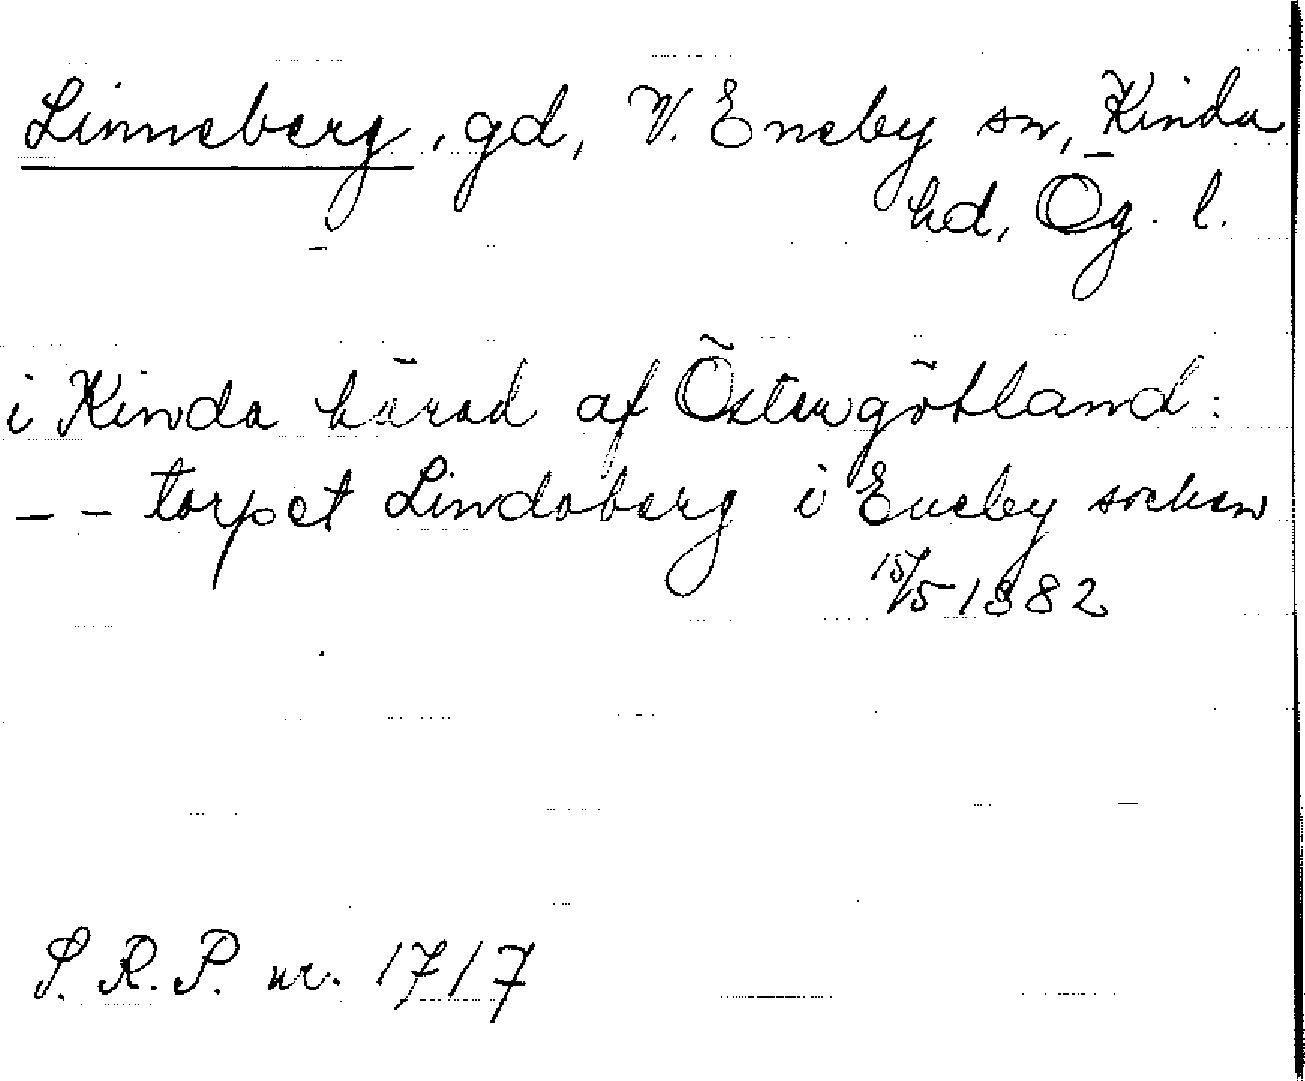 Linneberg, gd, V. Eneby sn, Kinda
hd, Ög. l.
i Kinda härad af Östergötland:
– – torpet Lindaberg i Eneby socken
15/5 1382
S. R. P. nr. 1717